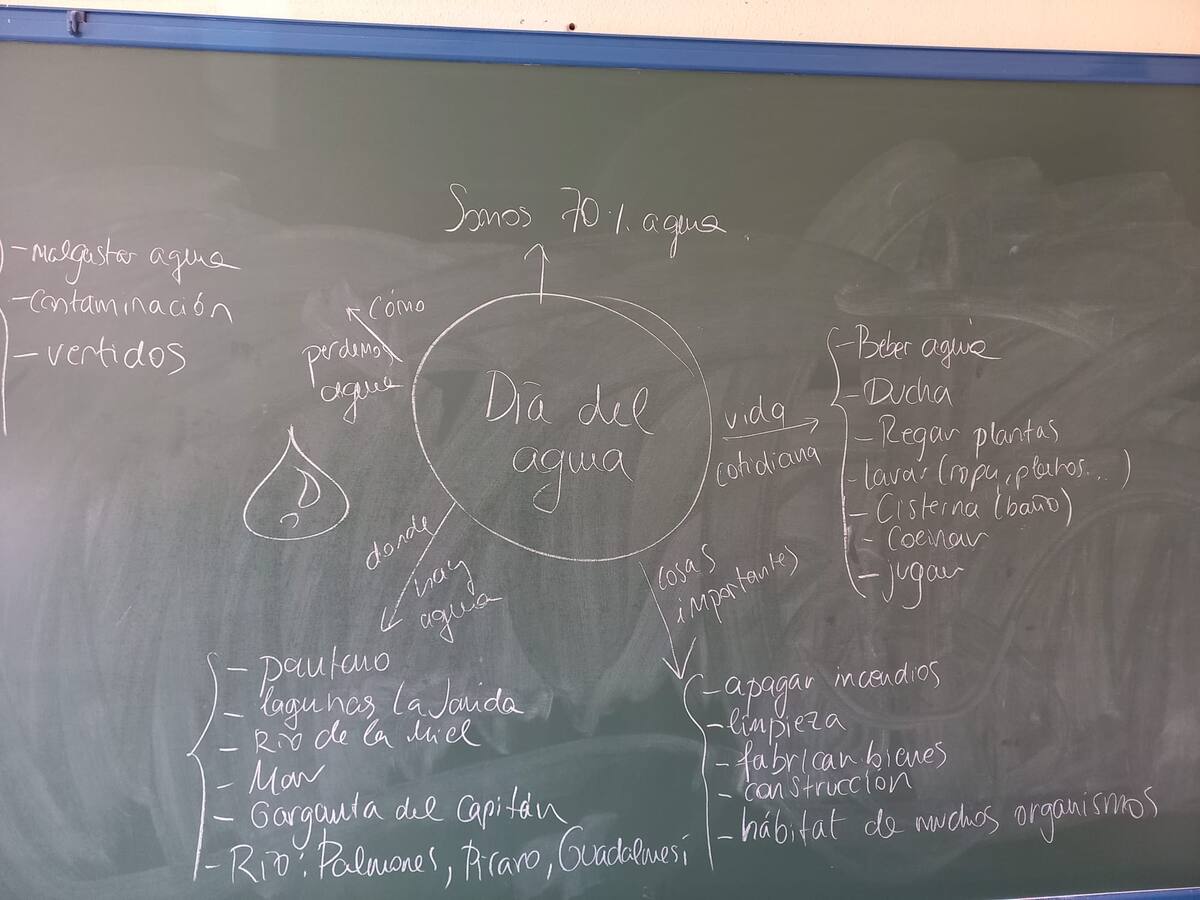 Somos 70% agua.
- Malgastar agua
- Contaminación
- vertidos
Cómo
perdemos
agua
Día del
agua
vida
cotidiana
- Beber agua
- Ducha
- Regar plantas
- Lavar (ropa, platos...)
- Cisterna (baño)
- Cocinar
- jugar
donde
hay
agua
- pantano
- lagunas La Janda
- Río de la Miel
- Mar
- Garganta del Capitán
- Río: Palmones, Pícaro, Guadalmesí
cosas
importantes
- apagar incendios
- limpieza
- fabrican bienes
- construcción
- hábitat de muchos organismos